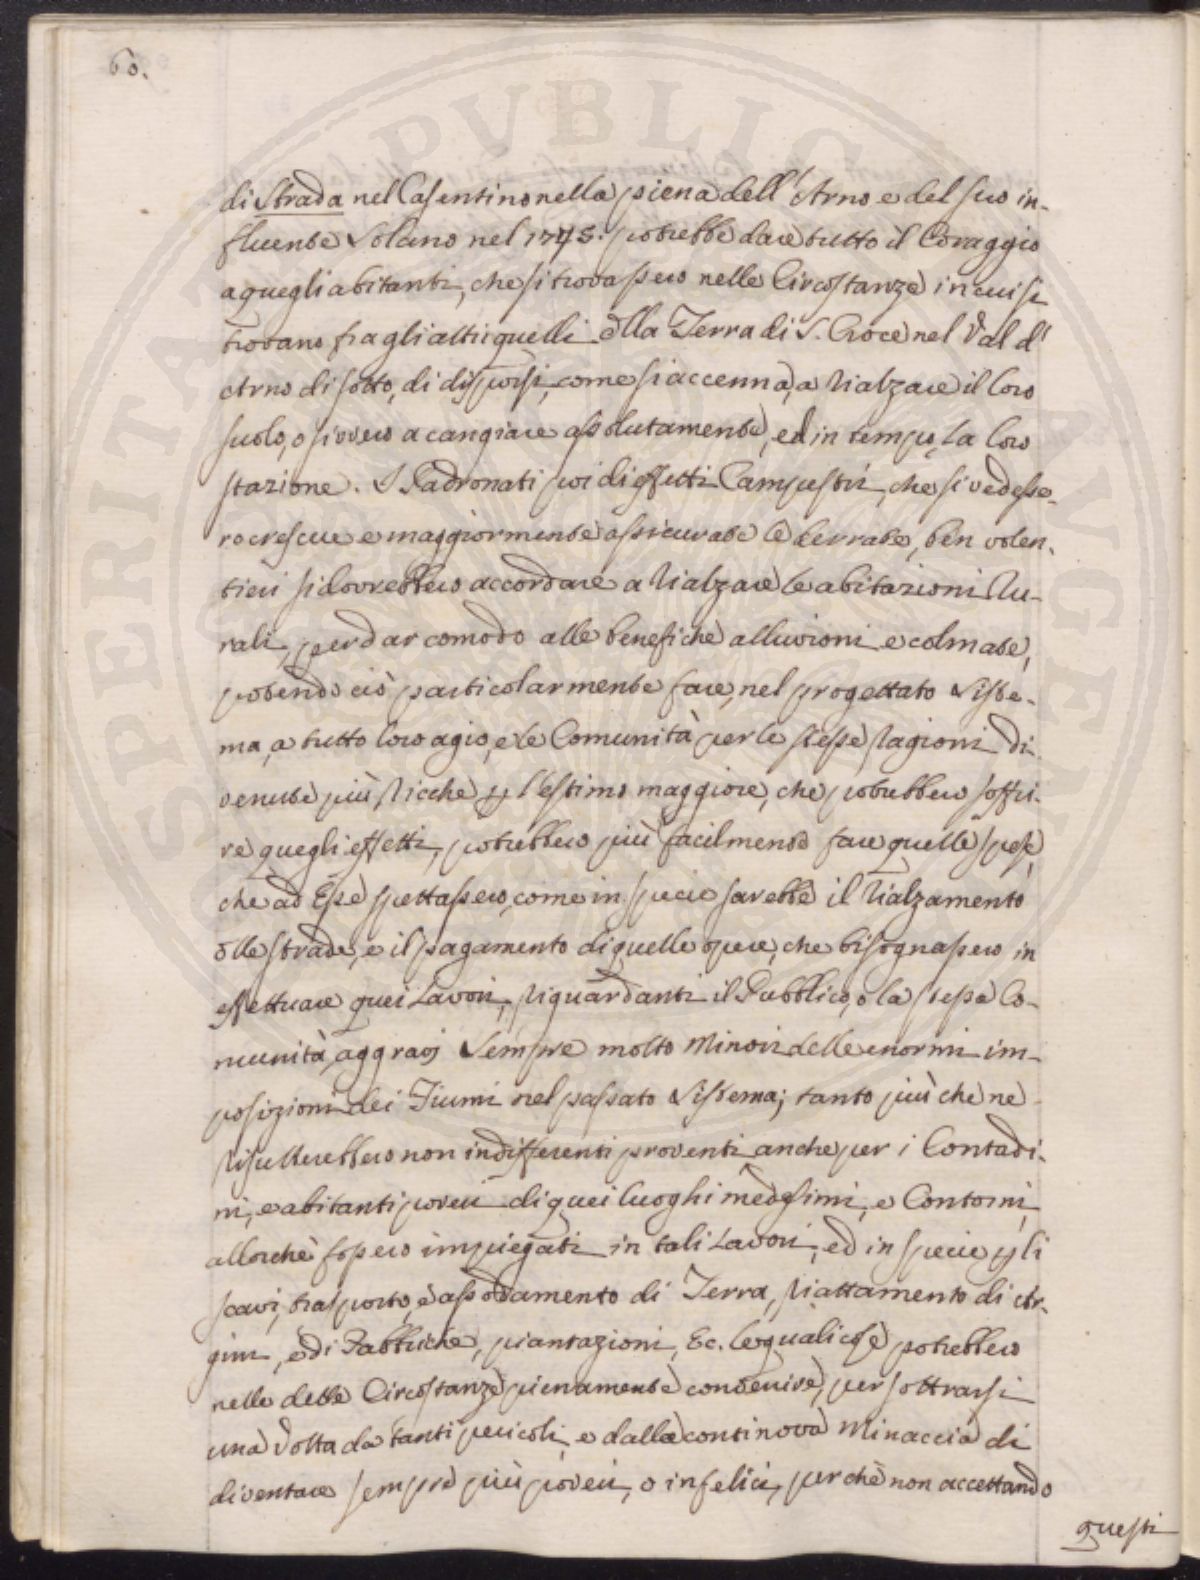 60.
di Strada nel Casentino nella piena dell'Arno e del suo in-
fluente Solano nel potrebbe dare tutto il Coraggio
a quegli abitanti, che si trovassero nelle Circostanze in cui si
trovano fra gli altri quelli della Terra di S. Croce nel Val d'
Arno di sotto, di disporsi, come si accennà, a Rialzare il loro
suolo, o sivvero a cangiare assolutamente, ed in tempo, la loro
stazione. I Padronati poi di effetti Campestri, che si vedesse-
ro crescere e maggiormente assicurate le derrate, ben volen-
tieri si dovrebbero accordare a Rialzare le abitazioni Ru-
rali, per dar comodo alle benefiche alluvioni e colmate,
potendo ciò particolarmente fare, nel progettato Siste-
ma, a tutto loro agio, e le Comunità per le stesse Ragioni di
venute più Ricche p l'estimo maggiore, che potrebbero soffri-
re quegli effetti, potrebbero più facilmente fare quelle spese,
che ad Esse spettassero, come in specie sarebbe il Rialzamento
delle strade, e il pagamento di quelle opere, che bisognassero in
effettuare quei Lavori, Riguardanti il Pubblico, o la stessa Co-
munità, aggravj Sempre molto Minori delle enormi im-
posizioni dei Fiumi nel passato Sistema; tanto più che ne
Risulterebbero non indifferenti proventi anche per i Contadi-
ni, e abitanti poveri di quei luoghi medesimi, e Contorni,
allorchè fossero impiegati in tali Lavori, ed in specie p gli
scavi, trasporto, e assodamento di Terra, Riattamento di Ar-
gini, e di Fabbriche, piantazioni, Ec. le quali cose potrebbero
nelle dette Circostanze pienamente convenire, per sottrarsi
una Volta da tanti pericoli, e dalla continova Minaccia di
diventare sempre più poveri, o infelici, perchè non accettando
questi
SPERITAT PVBLIC AVGEN